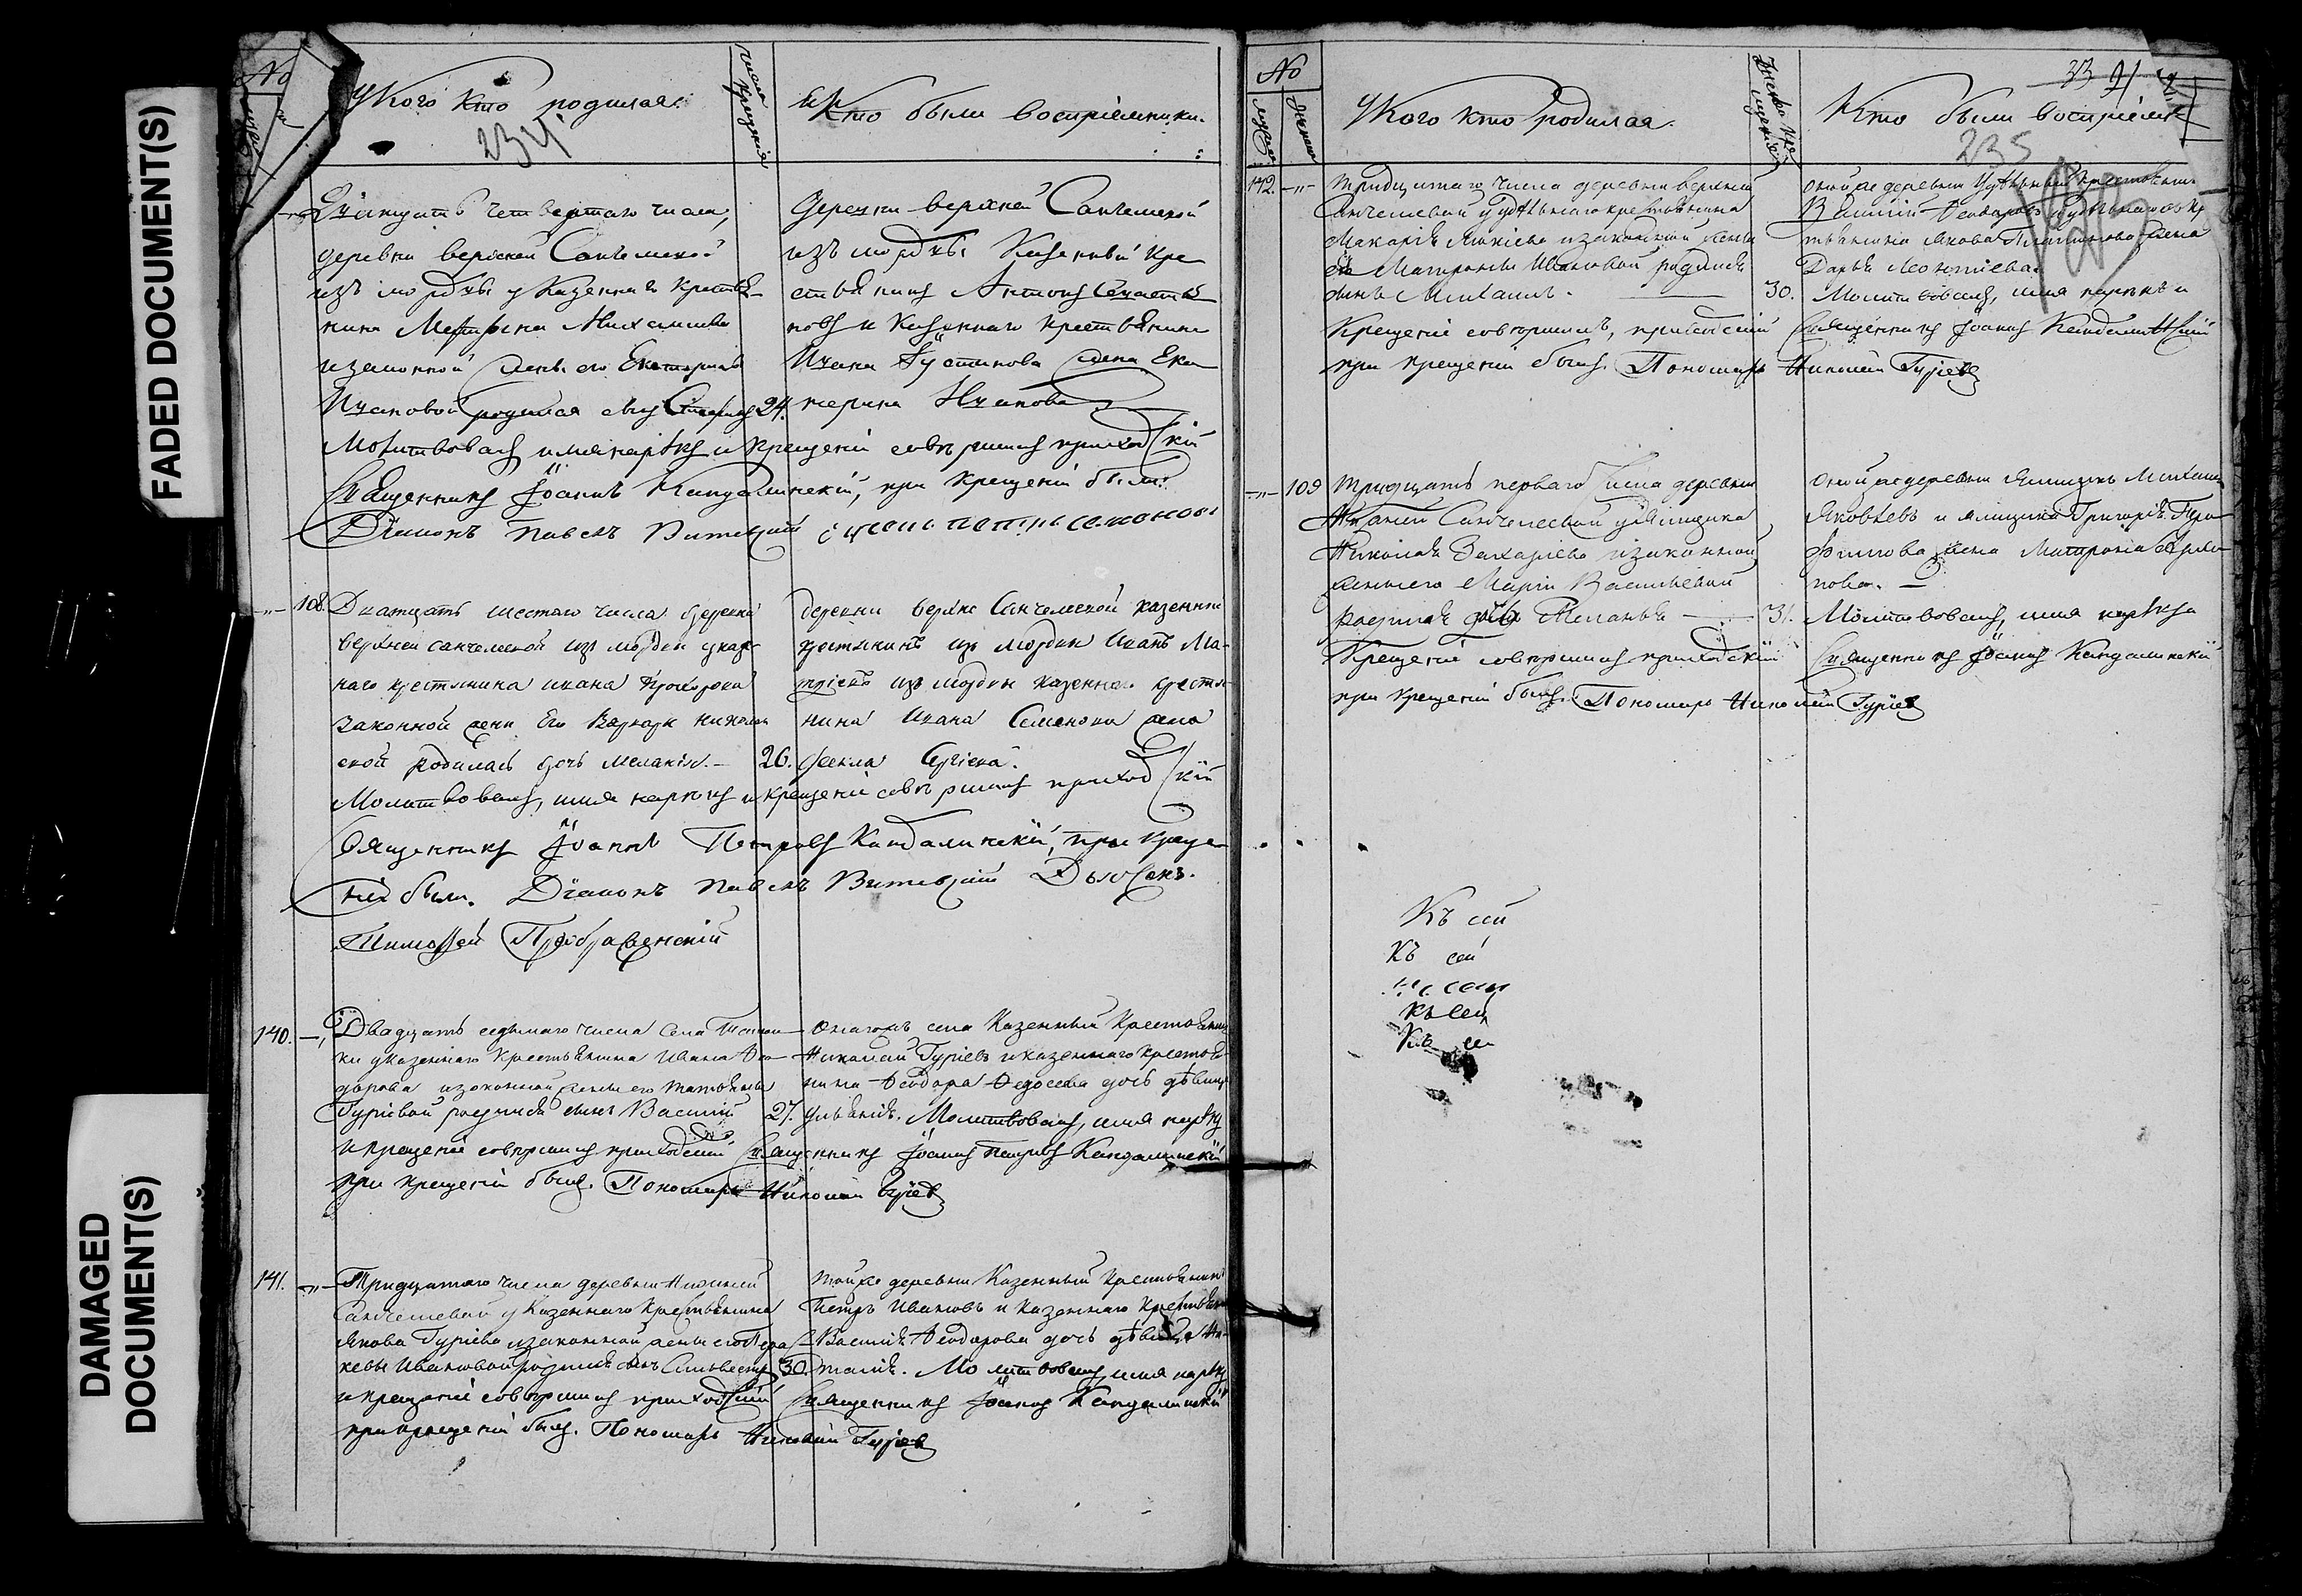 FADED DOCUMENT(S)
DAMAGED
DOCUMENT(S)
No
У Кого кто родился.
234
числа крещенія
Кто были воспріемники.
Двадцать четвертаго числа,
деревни верхней Санчелеевой
изъ мордвы у Казеннаго крестья-
нина Михайлова
и законной жены его Екатерины
Ивановой родился сынъ 24.
Деревни верхней Санчелеевой
изъ мордвы Казенный кре
стьянинъ Антонъ
новъ и Казеннаго крестьянина
Ивана Густинова жена Ека
терина Иванова
Молитвовалъ имя нарекъ и крещеніе совершилъ приходскій
Священникъ Іоаннъ Кандалинскій, при крещеніи были:
Діаконъ Павелъ
108. Дватцать шестаго числа деревни
верхней санчелеевой изъ мордвы у казе-
ннаго крестьянина ивана Прохорова
законной жены Его Варвары николаев
ской родилась дочь меланія. — 26.
деревни верхне Санчелеевой казенный
крестьянинъ изъ мордвы Иванъ Ма-
изъ мордвы казеннаго крестья
нина Ивана Семенова жена
фекла Сергіева.
Молитвовалъ, имя нарекъ и крещеніе совершилъ приходскій
Священникъ Іоаннъ Петровъ Кандалинскій, при креще
ніи были. Діаконъ Павелъ Дьячекъ.
Тимофей Преображенскій
140. Двадцать седьмаго числа села
ки у казеннаго крестьянина Ивана Ѳео
дорова и законной жены его Татьяны
Гуріевой родился сынъ Василій 27.
онагожъ села Казенный крестьянинъ
Николай Гуріевъ и казеннаго крестья
нина Ѳеодора Федосеева дочь дѣвица
Ульянія. Молитвовалъ, имя нарекъ
и крещеніе совершилъ приходскій Священникъ Іоаннъ Петровъ Кандалинскій
при крещеніи былъ. Пономарь Николай Гуріевъ
141. Тридцатаго числа деревни Нижней
Санчелеевой у Казеннаго крестьянина
Якова Гуріева и законной жены его Пара
кевы Ивановой родился сынъ Сильвестръ 30.
тойже деревни Казенный крестьянинъ
Петръ Ивановъ и Казеннаго крестьянина
Василія Ѳеодорова дочь дѣвица На-
талія. Молитвовалъ, имя нарекъ
и крещеніе совершилъ приходскій Священникъ Іоаннъ Кандалинскій
при крещеніи былъ. Пономарь Николай Гуріевъ
No
мужеск
женска
У Кого кто родился.
Кто были воспріемн
33
235
142. Тридцатаго числа деревни верхней
Санчелеевой у Удѣльнаго крестьянина
Макарія и законной жены
его Матроны Ивановой родился
сынъ Михаилъ. — 30.
оной же деревни Удѣльный крестьянинъ
Василій Ѳеодоровъ и Удѣльнаго кре
стьянина Якова жена
Дарья Леонтіева.
Молитвовалъ, имя нарекъ и
Крещеніе совершилъ, приходскій Священникъ Іоаннъ Кандалинскій
при крещеніи былъ. Пономарь Николай Гуріевъ
109 Тридцать перваго числа деревни
Нижней Санчелеевой у Ямщика
Николая Захаріева и законной
жены его Маріи Васильевой
родилась дочь Меланья — 31.
оной же деревни Ямщикъ Михаилъ
Яковлевъ и ямщика Григорія Тро
фимова жена Матрона
пова. —
Молитвовалъ, имя нарекъ и
Крещеніе совершилъ приходскій Священникъ Іоаннъ Кандалинскій
при крещеніи былъ. Пономарь Николай Гуріевъ
Къ сей
Къ сей
къ сей